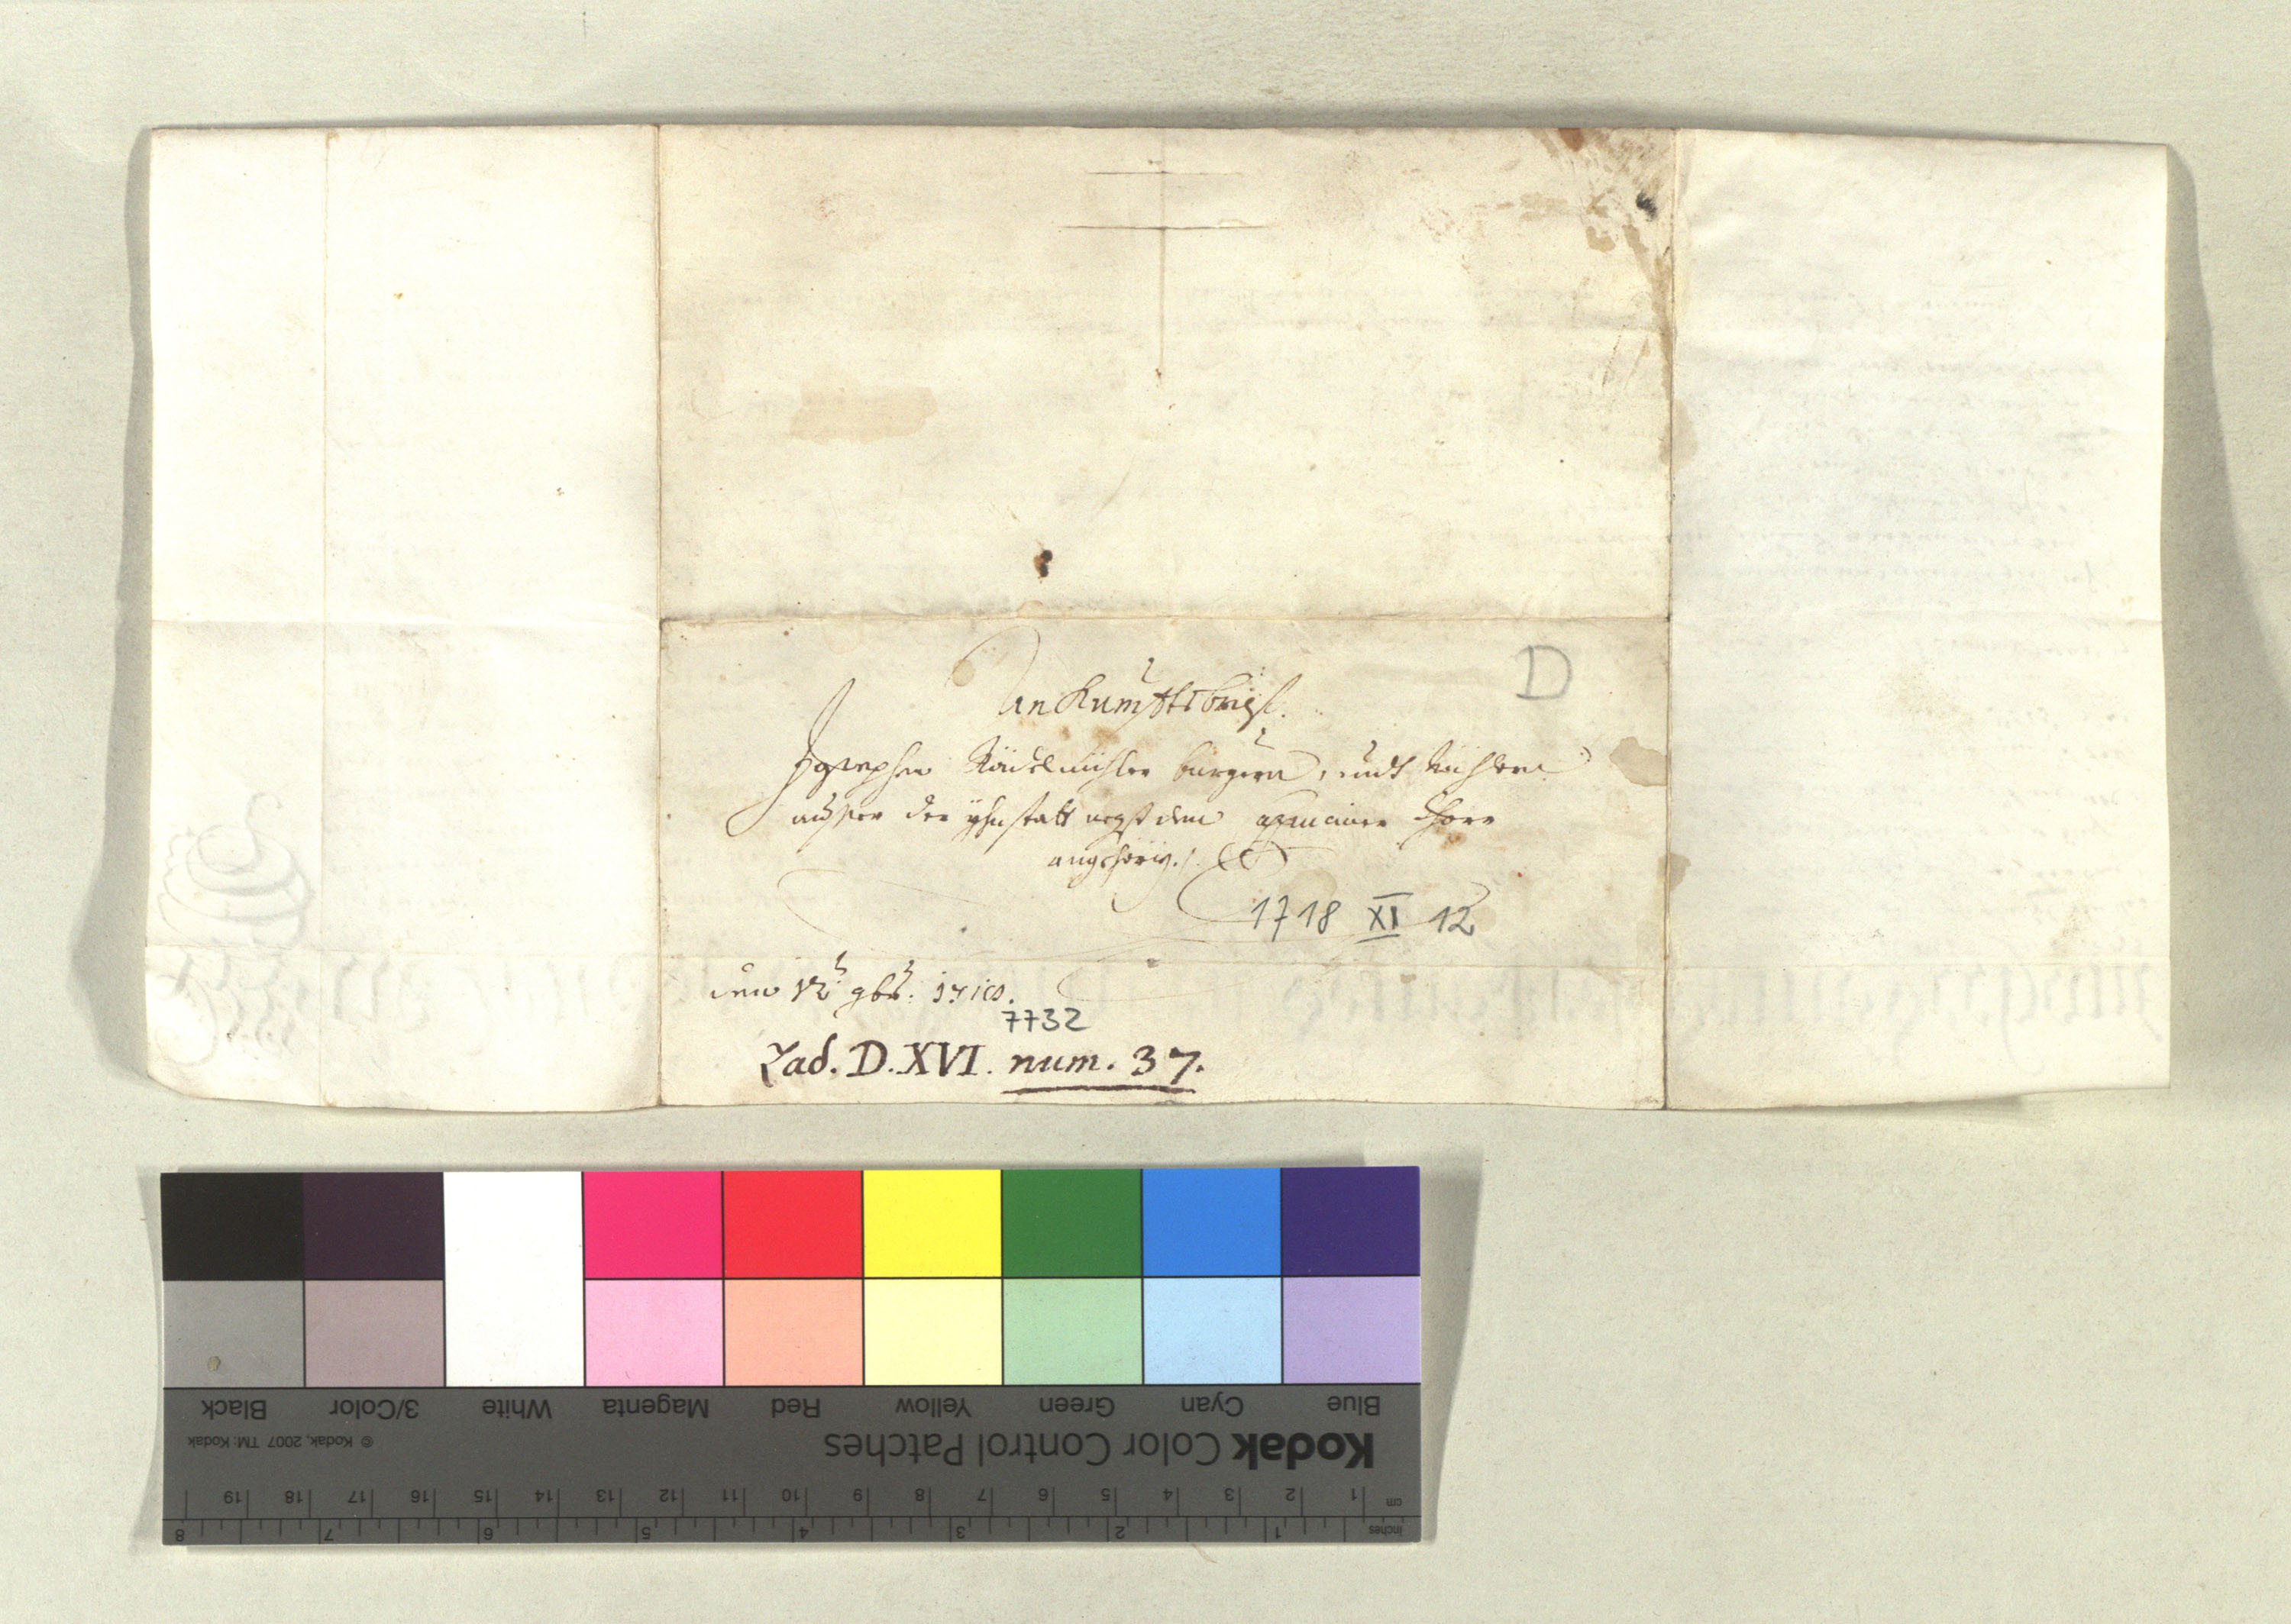 D
Ankunfftsbrieff.
Josephen Burgern, undt
ausser der Ihnstatt negst dem Thore
angehörig.
1718 XI 12
den 12t. 9br. 1718.
7732
Lad. D. XVI. num. 37.
Black 3/Color White Magenta Red Yellow Green Cyan Blue
© Kodak, 2007 TM: Kodak
Kodak Color Control Patches
cm 1 2 3 4 5 6 7 8 9 10 11 12 13 14 15 16 17 18 19
inches 1 2 3 4 5 6 7 8